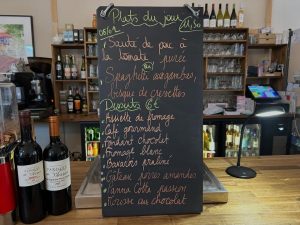 Plats du jour
05/01
Sauté de porc à
la tomate purée
Spaghetti aux gambas,
bisque de crevettes
Desserts 6€
Assiette de fromage
Café gourmand
Fondant chocolat
Fromage blanc
Bavarois praliné
Gâteau poires amandes
Panna Cotta passion
au chocolat